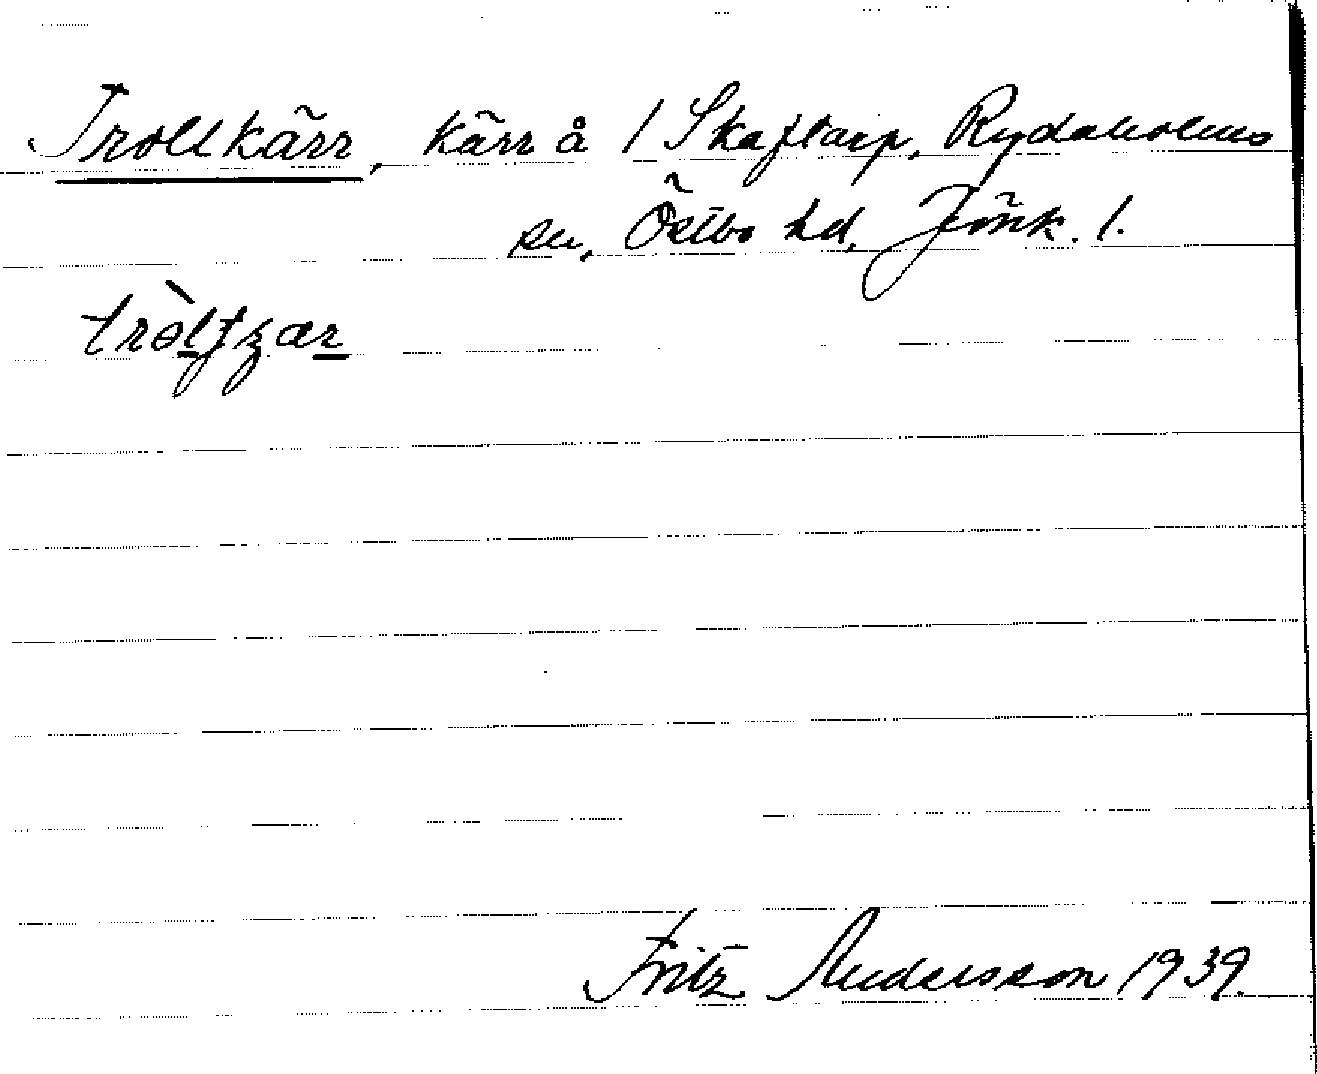 Trollkärr, kärr å 1 Skaftarp, Rydaholms
sn, Östbo hd, Jönk. l.
Fritz Andersson 1939.